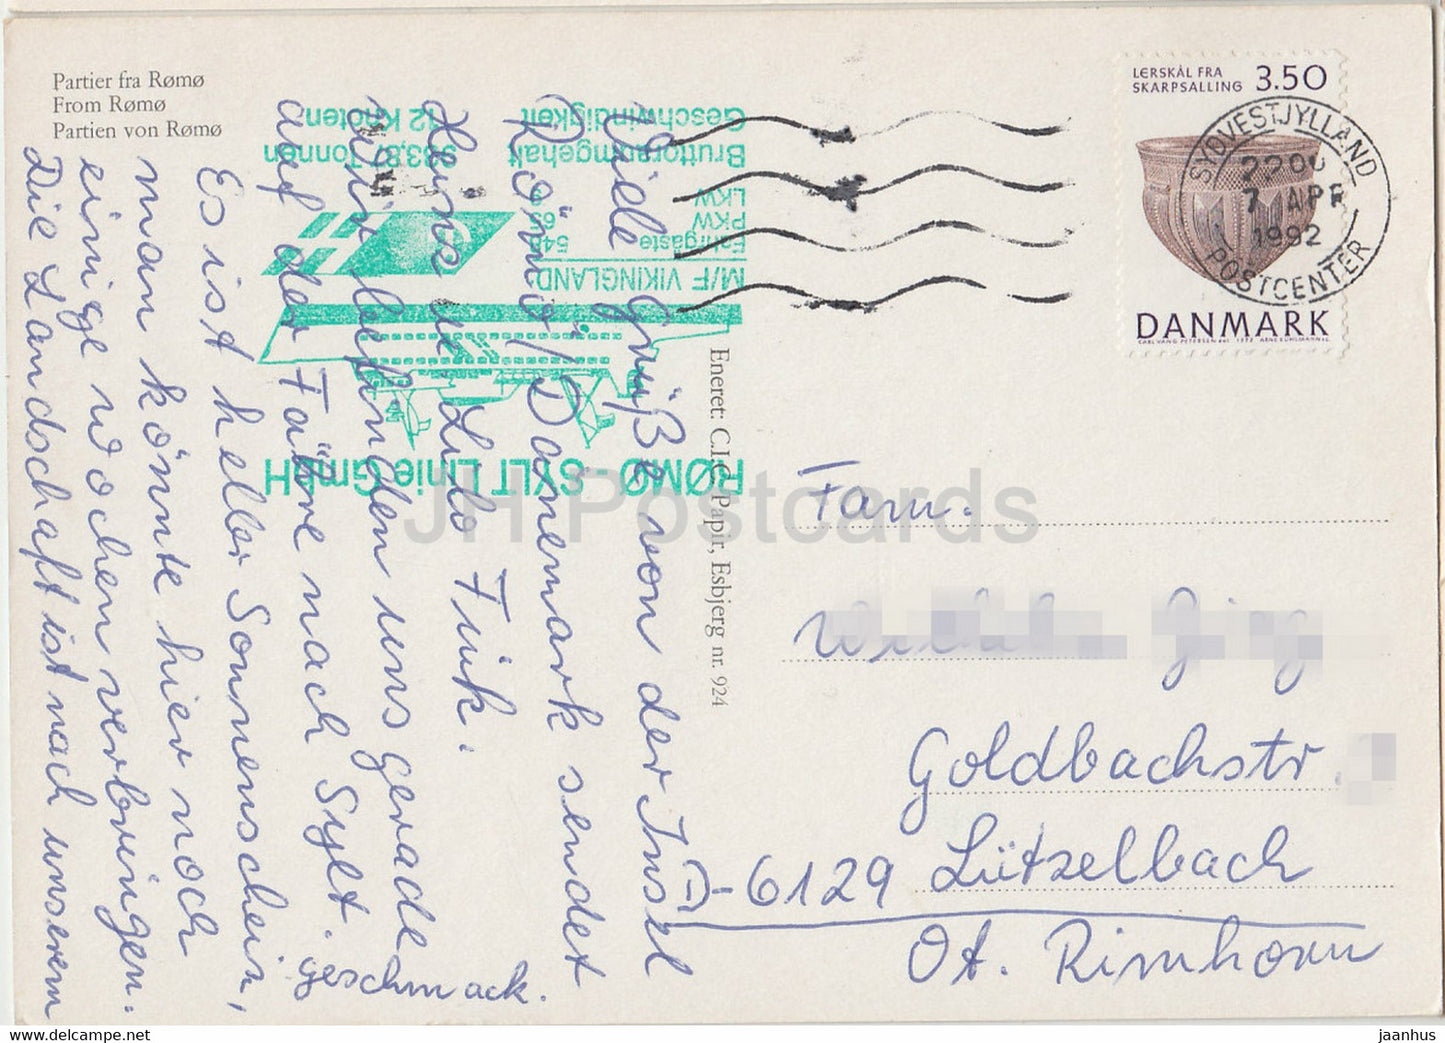 Partier fra Rømø
From Rømø
Partien von Rømø
LERSKÅL FRA
SKARPSALLING 3.50
DANMARK
SYDVESTJYLLAND
2200
7 APR
1992
POSTCENTER
RØMØ - SYLT Linie GmbH
M/F VIKINGLAND
Fahrgäste 540
PKW
LKW
Bruttoraumgehalt Tonnen
Geschwindigkeit 12 Knoten
Viele Grüße von der Insel
"Römö" / Dänemark sendet
Heinz u. Ludo Fink.
Wir befinden uns gerade
auf der Fähre nach Sylt.
Es ist heller Sonnenschein,
man könnte hier noch
einige Wochen verbringen.
Die Landschaft ist nach unserem
geschmack.
Eneret: C.I.C. Papir, Esbjerg nr. 924
Fam.
Goldbachstr.
D-6129 Lützelbach
Ot. Rimhorn
JH Postcards
delcampe.net
jaanhus